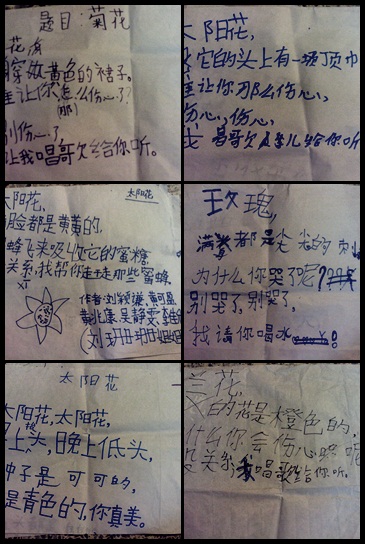 题目:菊花
花有
穿放黄色的裙子。
谁让你怎么伤心了?
(那)
别伤心了,
让我唱歌欠给你听。
太阳花,
它的头上有一张顶巾
谁让你那么伤心,
伤心,伤心,
我唱歌欠儿给你听
太阳花
太阳花,
脸都是黄黄的,
蜂飞来吸收它的蜜糖
关系,我帮你走那些蜜蜂
作者:刘颖谦,黄可盈
黄兆康,吴静雯,李
玫瑰,
满都是尖尖的刺
为什么你哭了呢?
别哭了,别哭了,
我请你喝水!
太阳花
太阳花,太阳花,
上头,晚上低头,
种子是可可的,
是青色的,你真美。
花,
的花是橙色的,
什么你会伤心呢
没关系,我唱歌给你听。